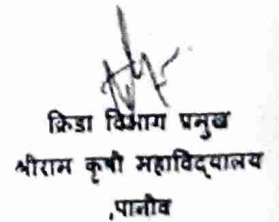 क्रिडा विभाग प्रमुख
श्रीराम कृषी महाविद्यालय
,पानीव